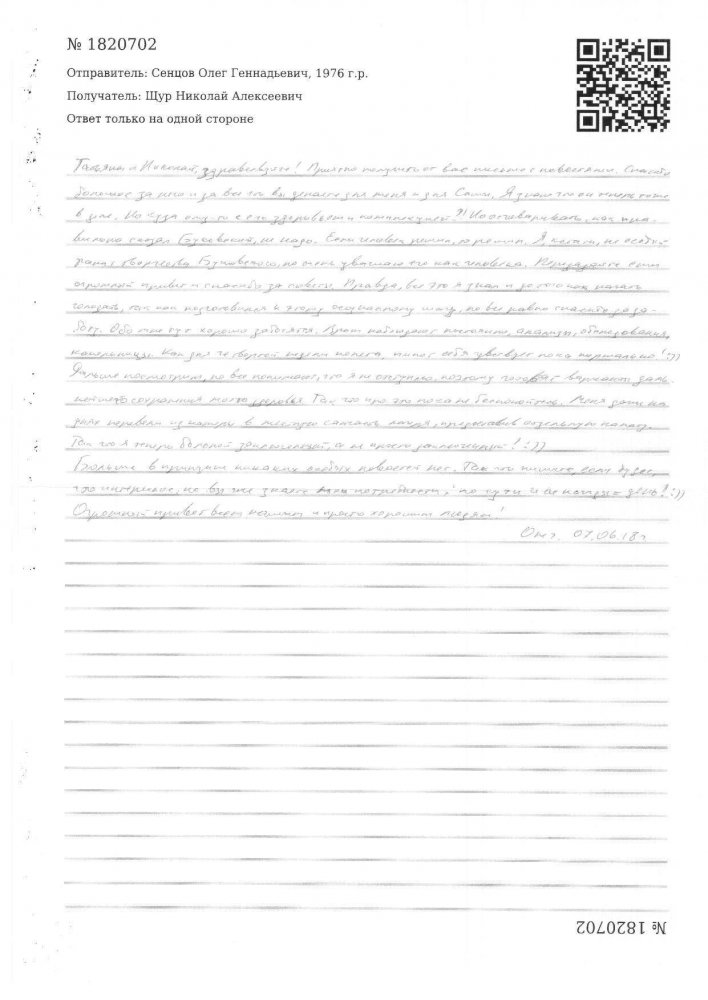 № 1820702
Отправитель: Сенцов Олег Геннадьевич, 1976 г.р.
Получатель: Щур Николай Алексеевич
Ответ только на одной стороне
Татьяна и Николай, здравствуйте! Приятно получить от вас письмо с новостями. Спасибо
большое за него и за все что вы делаете для меня и для Саши. Я знаю что он тоже
в деле. Но куда ему то с его здоровьем и комплекцией?! Но отговаривать, как пра-
вильно сказал Буковский, не надо. Если человек решил, то решил. Я, кстати, не особый
фанат творчества Буковского, но очень уважаю его как человека. Передавайте ему
огромный привет и спасибо за советы. Правда, все это я знал и до того как начать
голодать, так как подготовился к этому осознанному шагу, но все равно спасибо за за-
боту. Обо мне тут хорошо заботятся. Врачи наблюдают постоянно, анализы, обследования,
капельницы. Как для четвертой недели поста, пипл себя чувствует пока нормально! :))
Дальше посмотрим, но все понимают, что я не отступлю, поэтому готовят варианты даль-
нейшего сохранения моего здоровья. Так что про это пока не беспокойтесь. Меня даже на
днях перевели из камеры в местную санчасть лагеря, предоставив отдельную палату.
Так что я теперь больной заключенный, а не просто заключенный! :))
Больше в принципе никаких особых новостей нет. Так что пишите, если будет
что интересное, но вы же знаете мои потребности: по сути и не каждый день! :))
Огромный привет всем нашим и просто хорошим людям!
Олег. 07.06.18г
№ 1820702